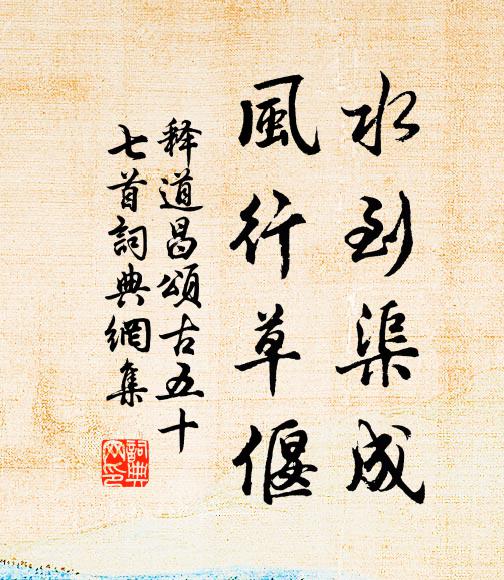 水到渠成
風行草偃
释道昌頌古五十
七首詞典網集
詞典網印